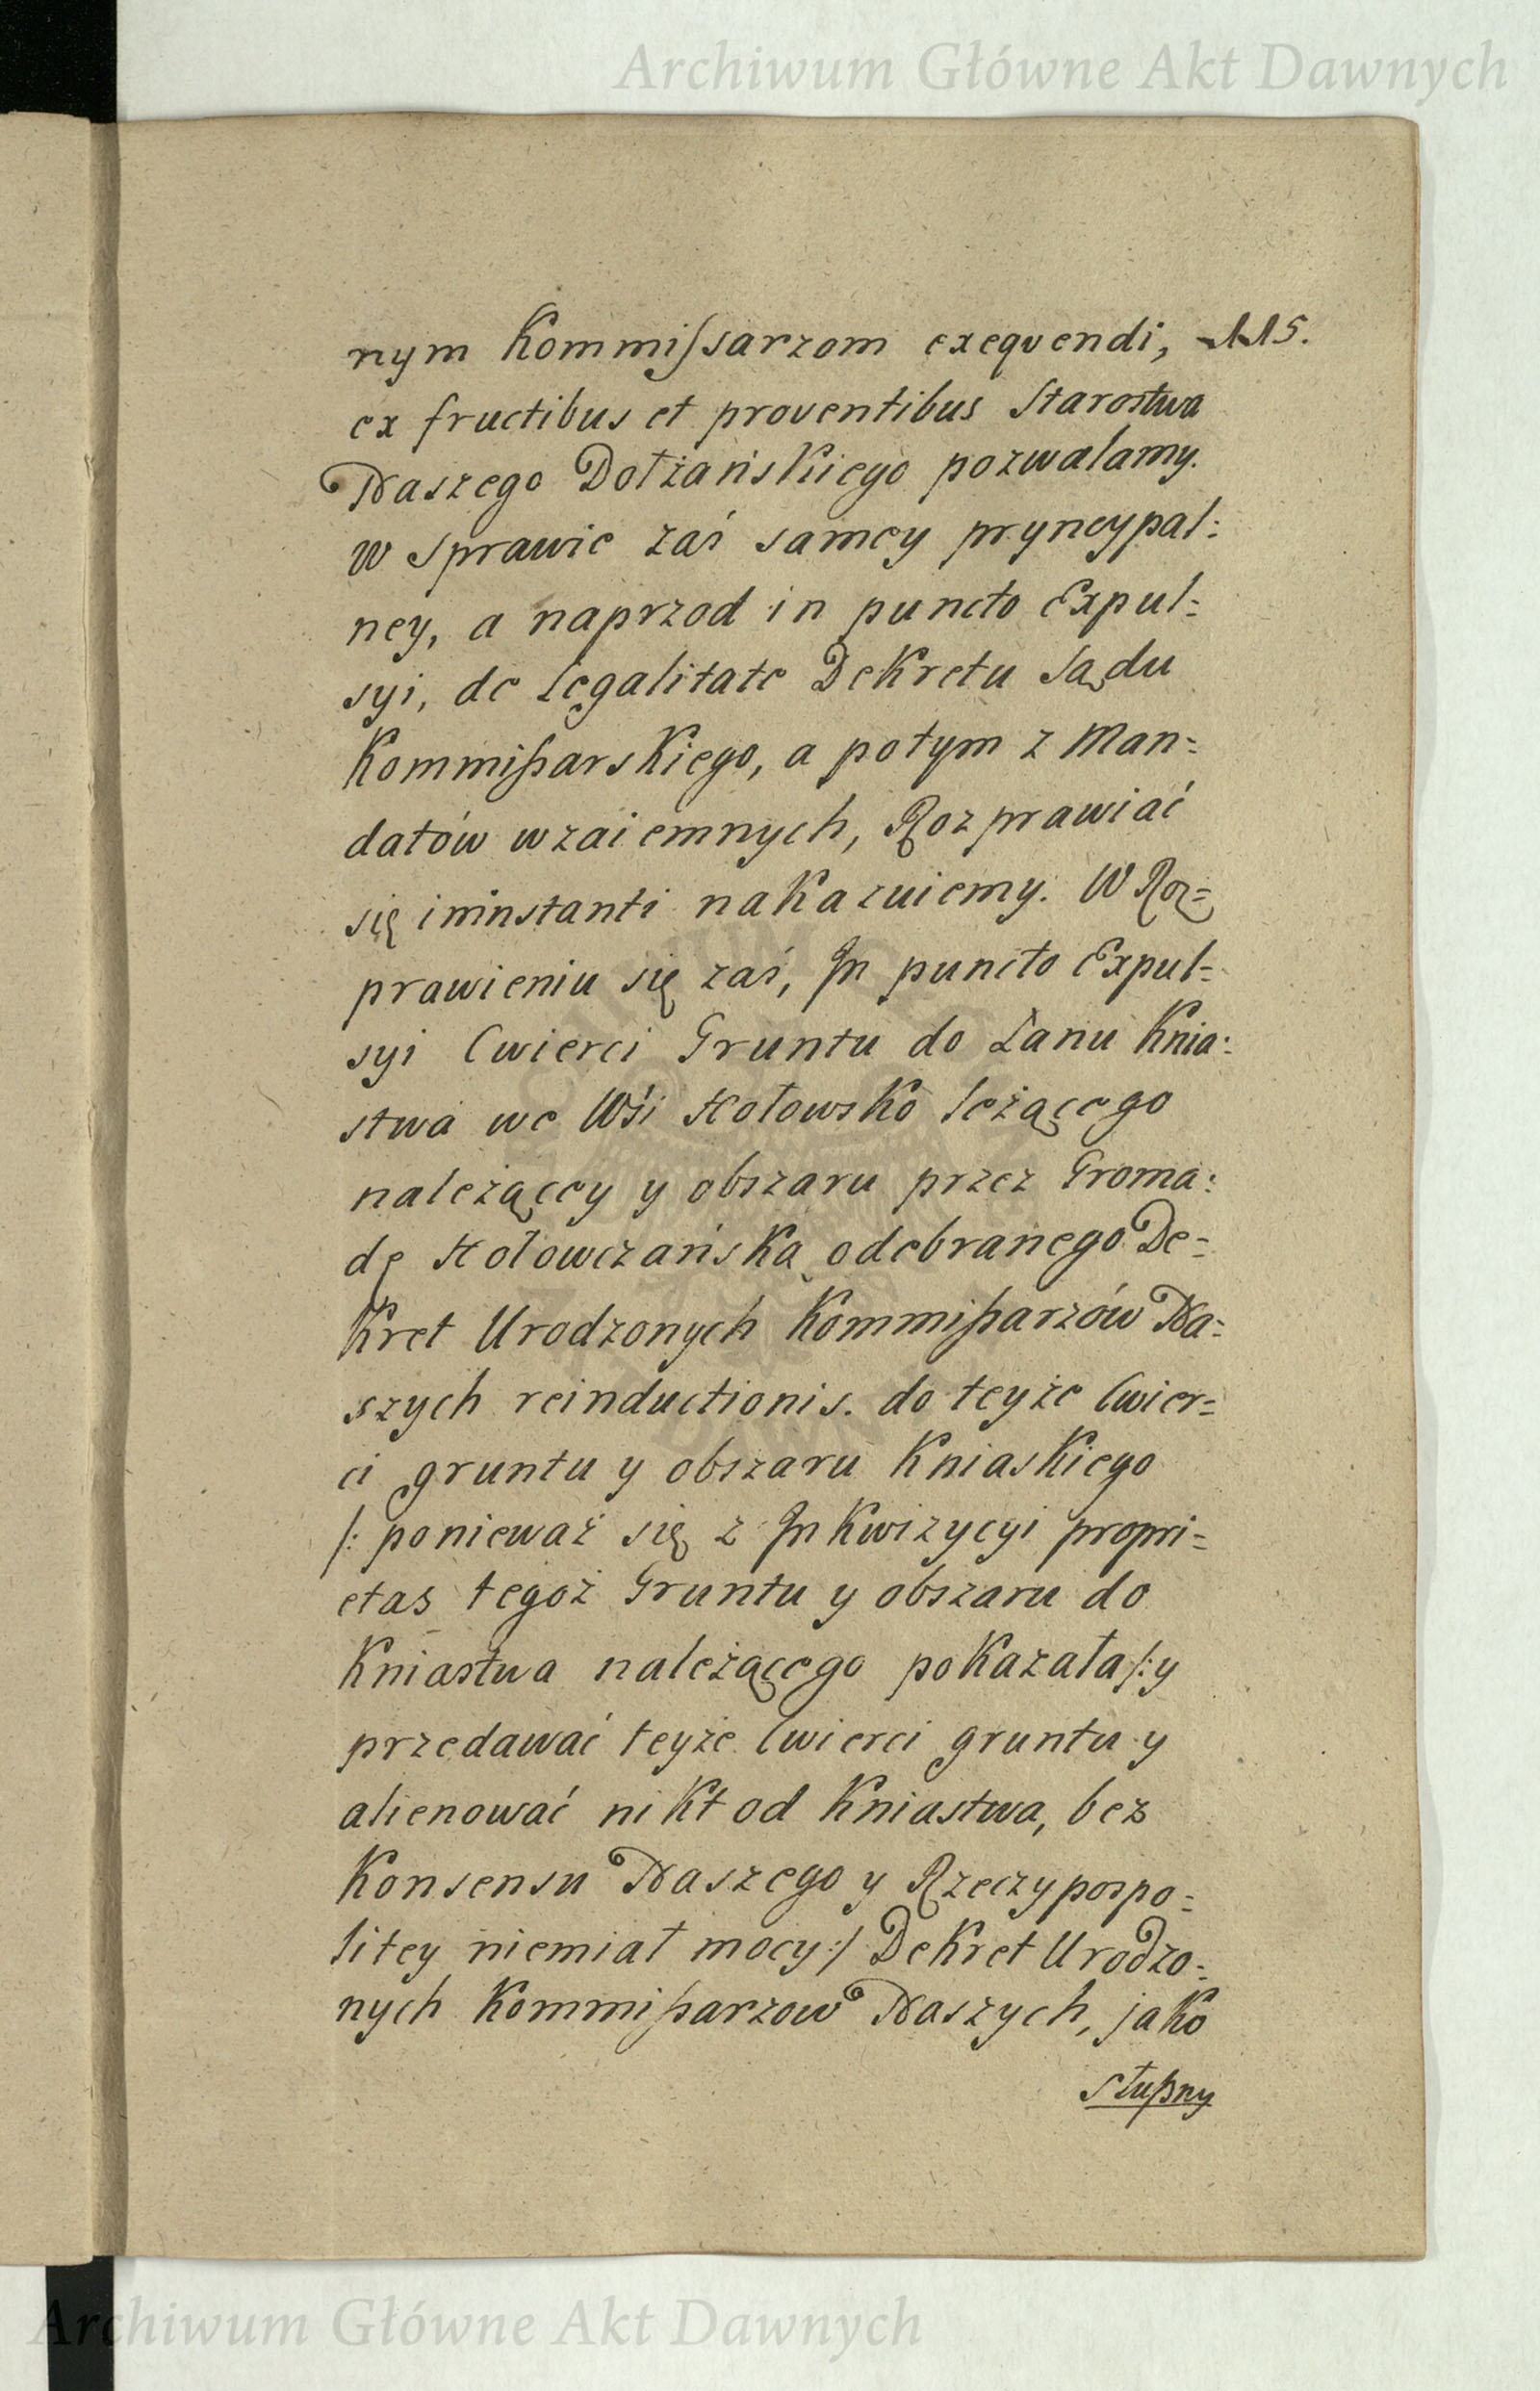 Archiwum Główne Akt Dawnych
nym Kommissarzom exequendi, 115.
ex fructibus et proventibus Starostwa
Naszego Dołżańskiego pozwalamy.
w Sprawie zaś samey pryncypal:
ney, a naprzod in puncto Expul=
syi, de Legalitate Dekretu Sądu
Kommißarskiego, a potym z Man=
datów wzaiemnych, Rozprawiać
się ininstanti nakazuiemy. W Roz=
prawieniu się zaś, In puncto Expul=
syi Cwierci Gruntu do Łanu Knia:
stwa we Wśi Hołowsko leżącego
należącey y obszaru przez Groma:
dę Hołowczańską odebranego De=
kret Urodzonych Kommißarzów Na=
szych reinductionis. do teyże Cwier=
ci gruntu y obszaru Kniaskiego
/: ponieważ się z Inkwizycyi propri=
etas tegoż Gruntu y obszaru do
Kniastwa należącego pokazała /: y
przedawać teyże Cwierci gruntu y
alienować nikt od Kniastwa, bez
Konsensu Naszego y Rzeczypospo=
litey niemiał mocy :/ Dekret Urodzo=
nych Kommißarzow Naszych, jako
słußny
Archiwum Główne Akt Dawnych